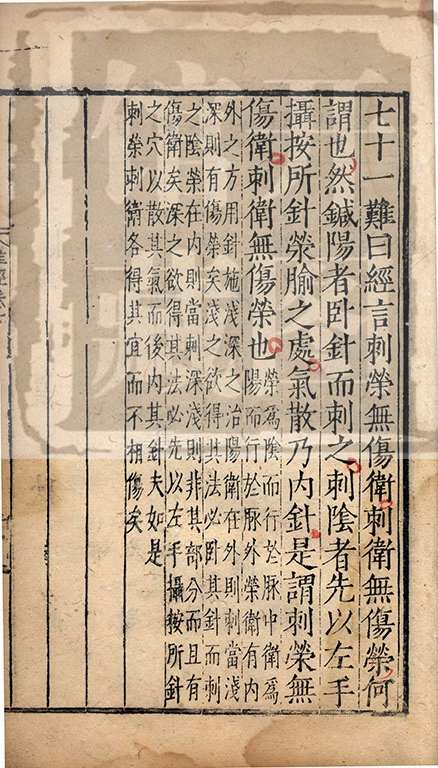 七十一難曰經言刺榮無傷衛刺衛無傷榮何
謂也然鍼陽者卧針而刺之刺陰者先以左手
攝按所針滎腧之處氣散乃内針是謂刺榮無
傷衛刺衛無傷榮也
榮爲陰而行於脉中衛爲
陽而行於脉外榮衛有内
外之方用針施淺深之治陽衛在外則刺當淺
深則有傷榮矣淺之欲得其法必卧其針而刺
之陰榮在内則當刺深淺則非其部分而且有
傷衛矣深之欲得其法必先以左手攝按所針
之穴以散其氣而後内其針夫如是
刺榮刺衛各得其宜而不相傷矣